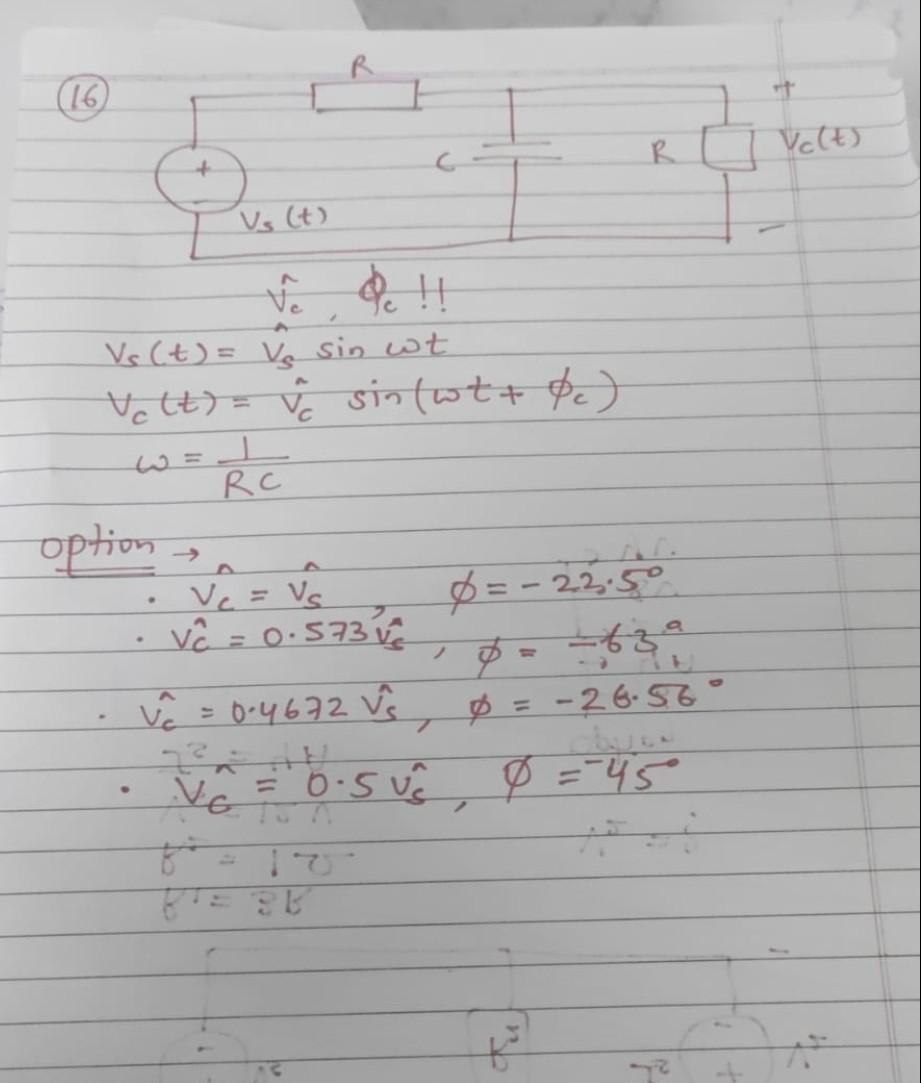 16
R
C
R
+
Vc(t)
-
+
-
Vs(t)
V̂c, ϕc !!
Vs(t) = V̂s sin ωt
Vc(t) = V̂c sin(ωt + ϕc)
ω = 1/RC
option →
· V̂c = V̂s, ϕ = -22.5°
· V̂c = 0.573 V̂s, ϕ = -63°
· V̂c = 0.4672 V̂s, ϕ = -26.56°
· V̂c = 0.5 V̂s, ϕ = -45°